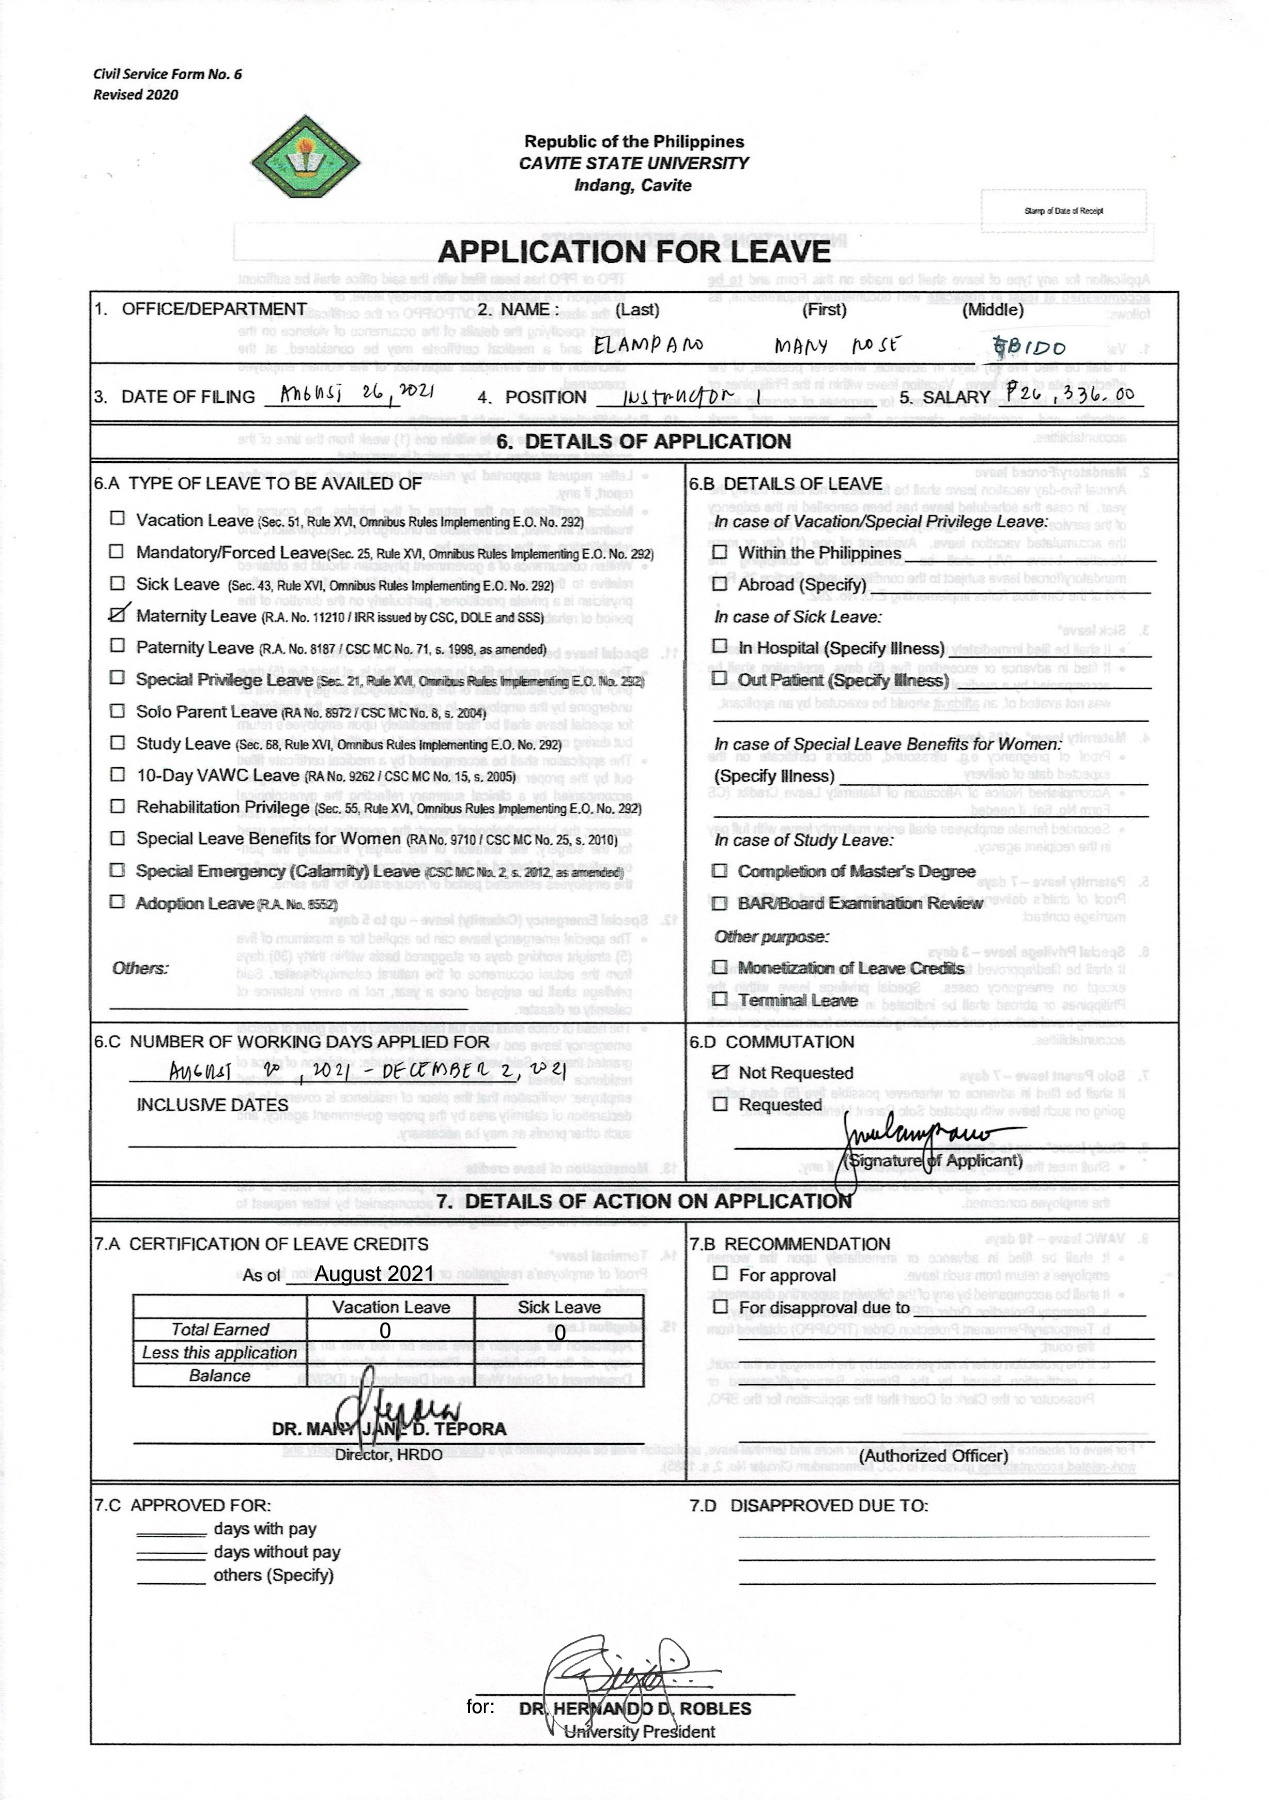 Civil Service Form No. 6
Revised 2020
Republic of the Philippines
CAVITE STATE UNIVERSITY
Indang, Cavite
Stamp of Date of Receipt
APPLICATION FOR LEAVE
1. OFFICE/DEPARTMENT 2. NAME : (Last) (First) (Middle)
ELAMPARO MARY ROSE UBIDO
3. DATE OF FILING AUGUST 26, 2021 4. POSITION INSTRUCTOR 1 5. SALARY ₱26,336.00
6. DETAILS OF APPLICATION
6.A TYPE OF LEAVE TO BE AVAILED OF
☐ Vacation Leave (Sec. 51, Rule XVI, Omnibus Rules Implementing E.O. No. 292)
☐ Mandatory/Forced Leave(Sec. 25, Rule XVI, Omnibus Rules Implementing E.O. No. 292)
☐ Sick Leave (Sec. 43, Rule XVI, Omnibus Rules Implementing E.O. No. 292)
☑ Maternity Leave (R.A. No. 11210 / IRR issued by CSC, DOLE and SSS)
☐ Paternity Leave (R.A. No. 8187 / CSC MC No. 71, s. 1998, as amended)
☐ Special Privilege Leave (Sec. 21, Rule XVI, Omnibus Rules Implementing E.O. No. 292)
☐ Solo Parent Leave (RA No. 8972 / CSC MC No. 8, s. 2004)
☐ Study Leave (Sec. 68, Rule XVI, Omnibus Rules Implementing E.O. No. 292)
☐ 10-Day VAWC Leave (RA No. 9262 / CSC MC No. 15, s. 2005)
☐ Rehabilitation Privilege (Sec. 55, Rule XVI, Omnibus Rules Implementing E.O. No. 292)
☐ Special Leave Benefits for Women (RA No. 9710 / CSC MC No. 25, s. 2010)
☐ Special Emergency (Calamity) Leave (CSC MC No. 2, s. 2012, as amended)
☐ Adoption Leave (R.A. No. 8552)
Others:
6.B DETAILS OF LEAVE
In case of Vacation/Special Privilege Leave:
☐ Within the Philippines
☐ Abroad (Specify)
In case of Sick Leave:
☐ In Hospital (Specify Illness)
☐ Out Patient (Specify Illness)
In case of Special Leave Benefits for Women:
(Specify Illness)
In case of Study Leave:
☐ Completion of Master's Degree
☐ BAR/Board Examination Review
Other purpose:
☐ Monetization of Leave Credits
☐ Terminal Leave
6.C NUMBER OF WORKING DAYS APPLIED FOR
AUGUST 20, 2021 - DECEMBER 2, 2021
INCLUSIVE DATES
6.D COMMUTATION
☑ Not Requested
☐ Requested
(Signature of Applicant)
7. DETAILS OF ACTION ON APPLICATION
7.A CERTIFICATION OF LEAVE CREDITS
As of August 2021
Vacation Leave Sick Leave
Total Earned 0 0
Less this application
Balance
DR. MARY JANE D. TEPORA
Director, HRDO
7.B RECOMMENDATION
☐ For approval
☐ For disapproval due to
(Authorized Officer)
7.C APPROVED FOR:
days with pay
days without pay
others (Specify)
7.D DISAPPROVED DUE TO:
for: DR. HERNANDO D. ROBLES
University President